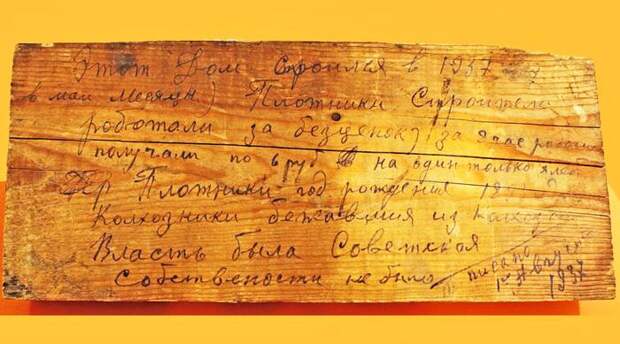 Этот Дом строился в 1937
в маи Месяцу) Плотники Строители
роботали за безценок) за
получали по 6 руб на один только
Плотники год рождения
Колхозники бежавшия из колхозов
Власть была Советская
Собствености не было
писано
1го Август
1937